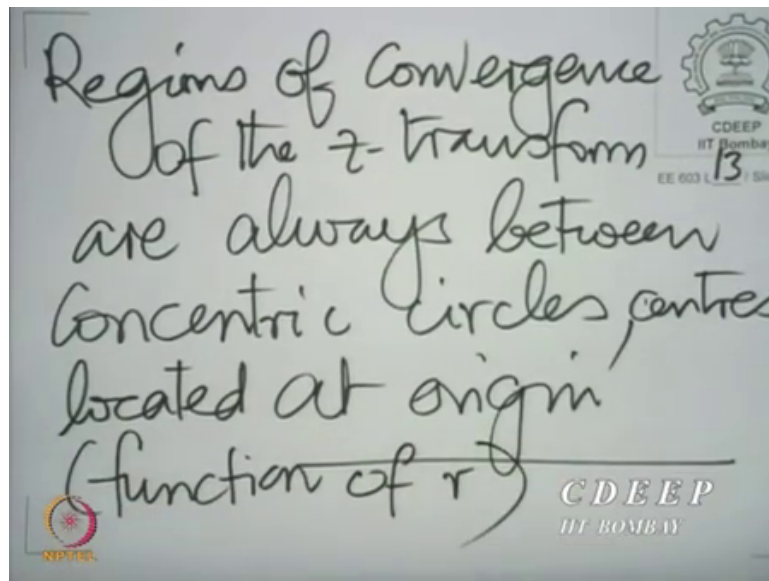 Regions of Convergence
of the z-transform
are always between
Concentric circles, centres
located at origin
(function of r)
CDEEP
IIT Bombay
EE 603 L 13 / Sli
CDEEP
IIT BOMBAY
NPTEL